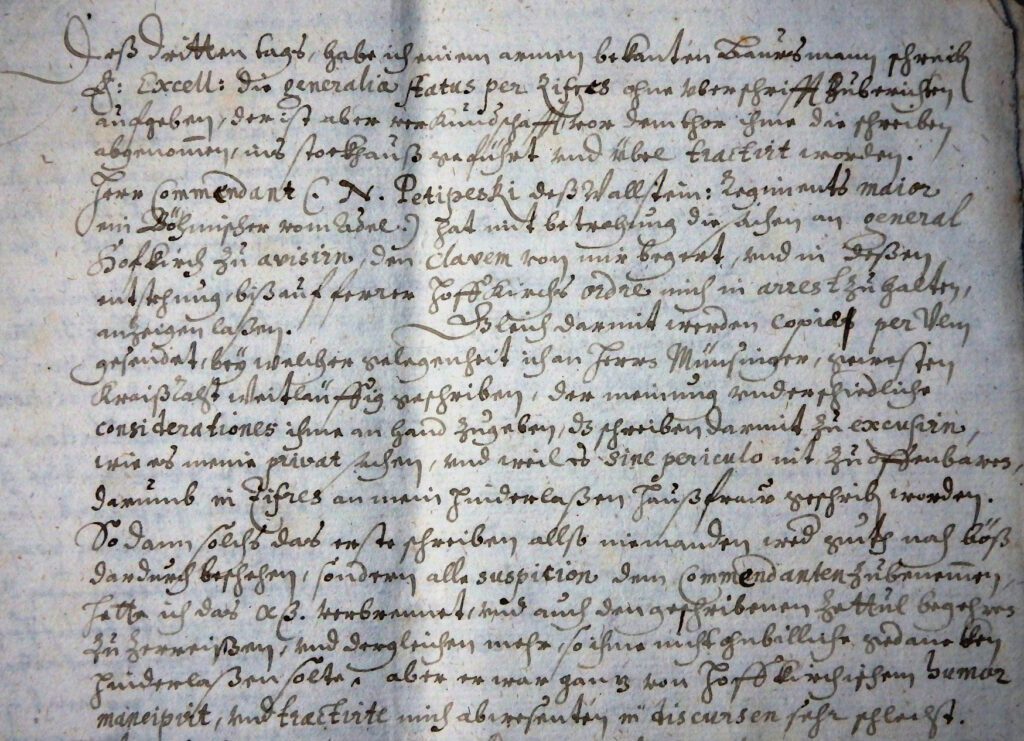 Deß dritten tags, habe ich einem armen bekanten Baursmann schreib
E: Excell: die generalia status per Zifres ohne vberschrifft Zuberichten
aufgeben, der ist aber verkundschafft, vor dem thor ihme die schreiben
abgenom̄en, ins stockhauß geführt vnd übel tractirt worden.
Herr Commendant (. N. Petipeski deß Wallstein: Regiments maior
ein Böhmischer vom Adel.) hat mit betrohung die sachen an general
Hofkirch zu avisirn, den Clavem von mir begert, vnd in deßen
entstehung, biß auf ferrer Hoffkirchs ordre mich in arrest zu halten,
anzeigen laßen. Gleich darmit werden copias per Vlm
gesendet, bey welcher gelegenheit ich an Herrn Münsinger, gewesten
Kraiß weitläuffig geschriben, der meinung vnderschiedliche
considerationes ihme an hand zugeben, dz schreiben darmit zu excusirn,
wie es meine privat sachen, vnd weil es sine periculo nit zu offenbaren,
darumb in Zifres an mein hinderlaßen haußfraw geschrib worden.
So dann solchs das erste schreiben allso niemanden wed guth noch böß
dardurch beschehen, sondern alle suspicion dem Commendanten zubenem̄en,
hette ich das verbrennet, vnd auch den geschribenen Zettul begehren
zu zerreißen, vnd dergleichen mehr, so ihme nicht ohnbilliche gedancken
hinderlaßen solte, aber er war gantz von Hoffkirchischem humor
mancipirt, vnd tractirte mich absenten in discursen sehr schlecht.